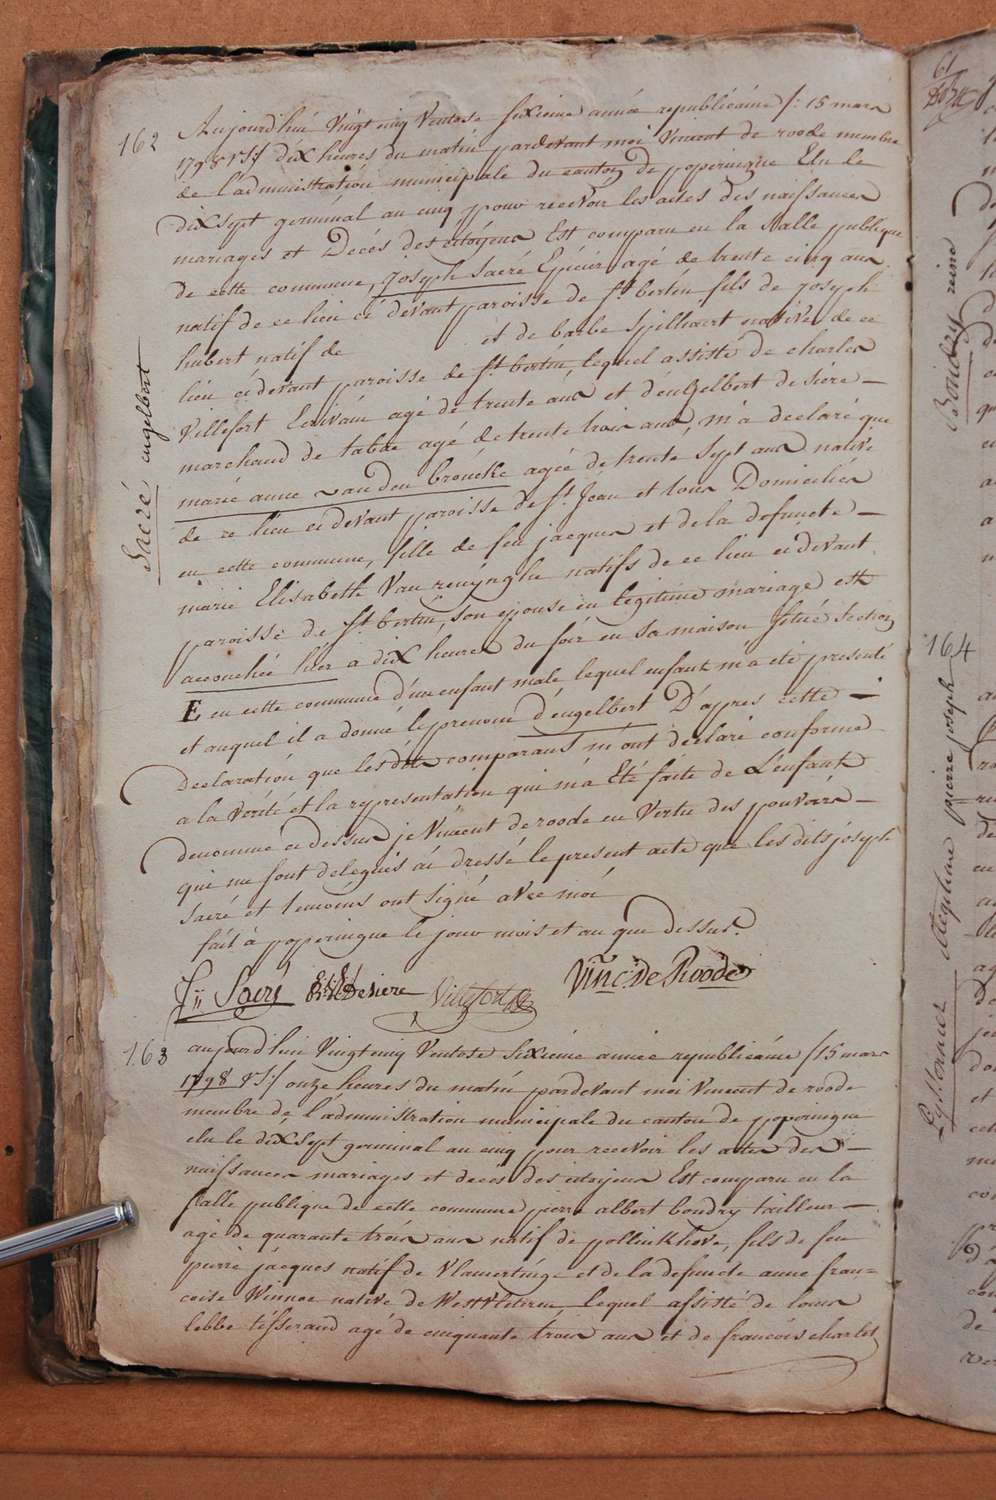 162
Sacré engelbert
Aujourd'hui Vingt cinq Ventose Sixieme année republicaine /: 15 mars
1798 VS:/ dix heures du matin pardevant moi Vincent de roode membre
de l'administration municipale du canton de poperingue Elu le
dix sept germinal an cinq pour recevoir les actes des naissances
mariages et Decés des citoyens Est comparu en la Salle publique
de cette commune, Joseph Sacré Epicier agé de trente cinq ans
natif de ce lieu ci devant paroisse de St bertin fils de joseph
hubert natif de et de barbe Spilliaert native de ce
lieu ci devant paroisse de St bertin, lequel assisté de charles
Villefort Ecrivain agé de trente ans et d'engelbert desiere —
marchand de tabac agé de trente trois ans, m'a declaré que
marie anne vanden broucke agée de trente Sept ans native
de ce lieu ci devant paroisse de St Jean et tous Domiciliés
en cette commune, fille de feu jacques et de la defuncte —
marie Elisabeth Van renynghe natifs de ce lieu ci devant
paroisse de St bertin, son epouse en legitime mariage est
accouchée hier a dix heures du soir en sa maison Située Section
E en cette commune d'un enfant male lequel enfant m'a eté presenté
et auquel il a donné le prenom d'engelbert D'apres cette —
declaration que les dits comparans m'ont declaré conforme
a la verité et la representation qui m'a Eté faite de L'enfant
denommé ci dessus je Vincent de roode en Vertu des pouvoirs —
qui me sont delegués ai dressé le present acte que les dits joseph
Sacré et temoins ont signé avec moi
fait à poperingue le jour mois et an que dessus.
J: Sacré Desiere Villefort Vinc: De Roode
163
aujourd'hui Vingt cinq Ventose Sixieme année republicaine /15 mars
1798 VS:/ onze heures du matin pardevant moi Vincent de roode
membre de l'administration municipale du canton de poperingue
elu le dix sept germinal an cinq pour recevoir les actes des —
naissances mariages et deces des citoyens Est comparu en la
Salle publique de cette commune pierre albert boudry tailleur —
agé de quarante trois ans natif de pollinkhove, fils de feu
pierre jacques natif de Vlamertinge et de la defuncte anne fran=
coise Winnoc native de Westvleteren, lequel assisté de louis
lebbe tisserand agé de cinquante trois ans et de francois charles
61
Boudry reine
164
pierre joseph